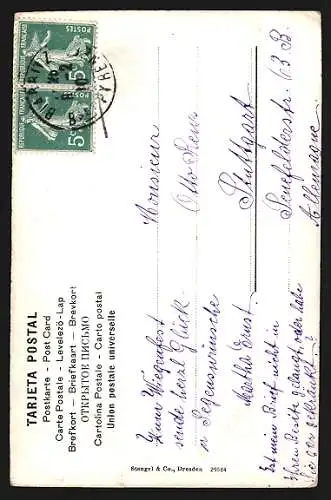 TARJETA POSTAL
Postkarte - Post Card
Carte Postale - Levelező-Lap
Brefkort - Briefkaart - Brevkort
ОТКРЫТОЕ ПИСЬМО
Cartolina Postale - Carto postal
Union postale universelle
REPUBLIQUE FRANÇAISE
POSTES
5c
REPUBLIQUE FRANÇAISE
POSTES
5c
BIARRITZ
Monsieur
Otto
Stuttgart
Senefelderstr. 63 B.
Allemagne
Zum Wiegenfest
sende herzl. Glück-
u. Segenswünsche
Martha Ernst
Ist mein Brief nicht in
Ihren Besitz gelangt oder habe
Stengel & Co., Dresden 24684